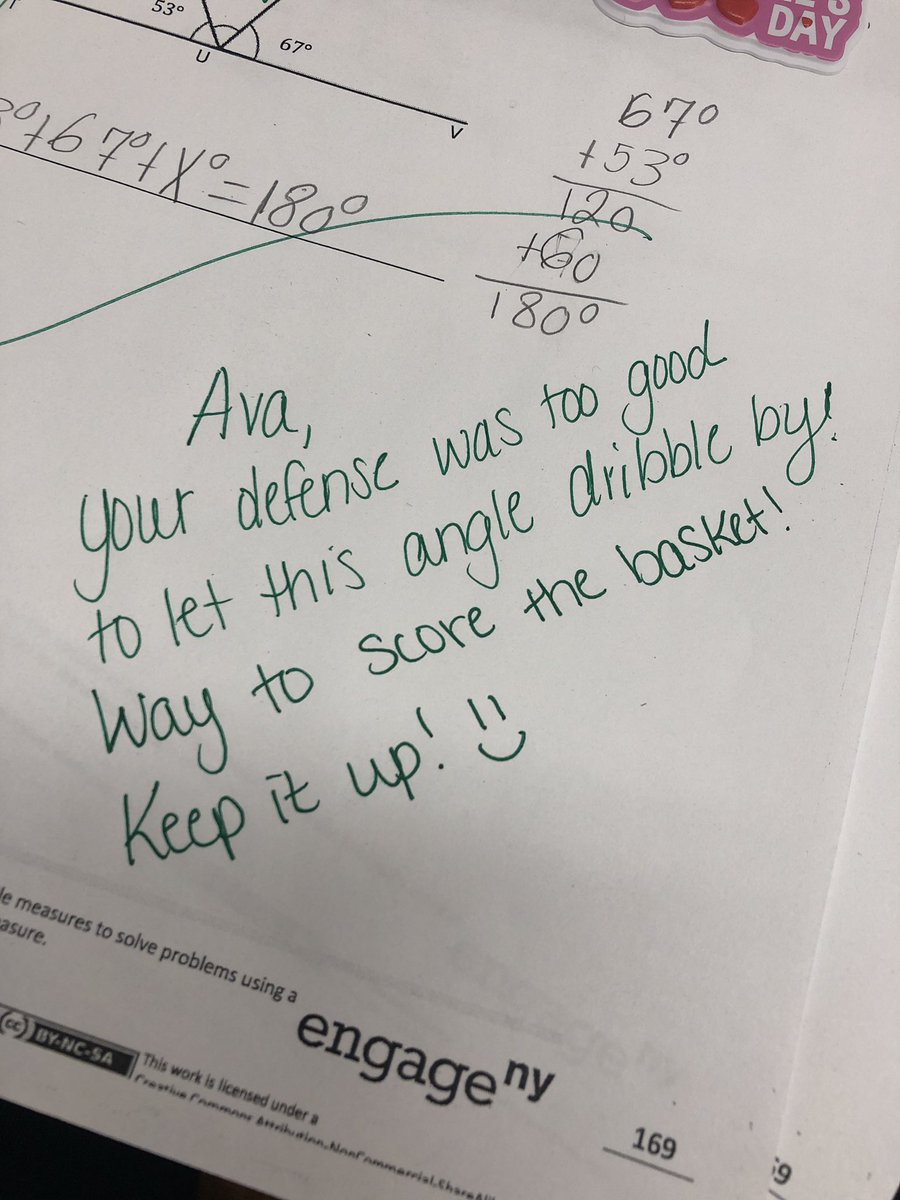 DAY
53°
67°
U
V
67°
+53°
120
+60
180°
°+67°+X°=180°
Ava,
your defense was too good
to let this angle dribble by!
Way to score the basket!
Keep it up!
measures to solve problems using a
engage ny
BY-NC-SA
This work is licensed under a
Creative Commons Attribution-NonCommercial-ShareAli
169